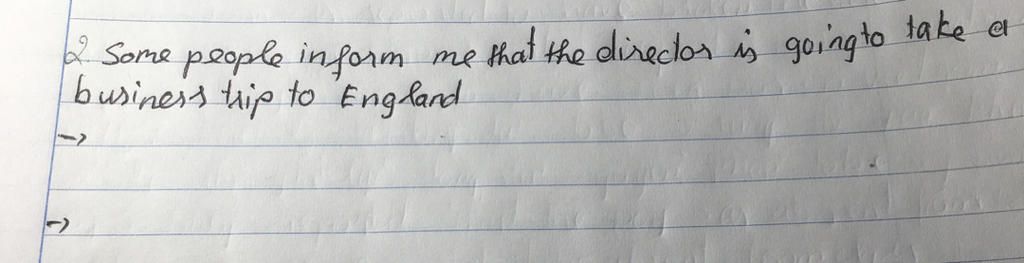 2. Some people inform me that the director is going to take a
business trip to England
->
->